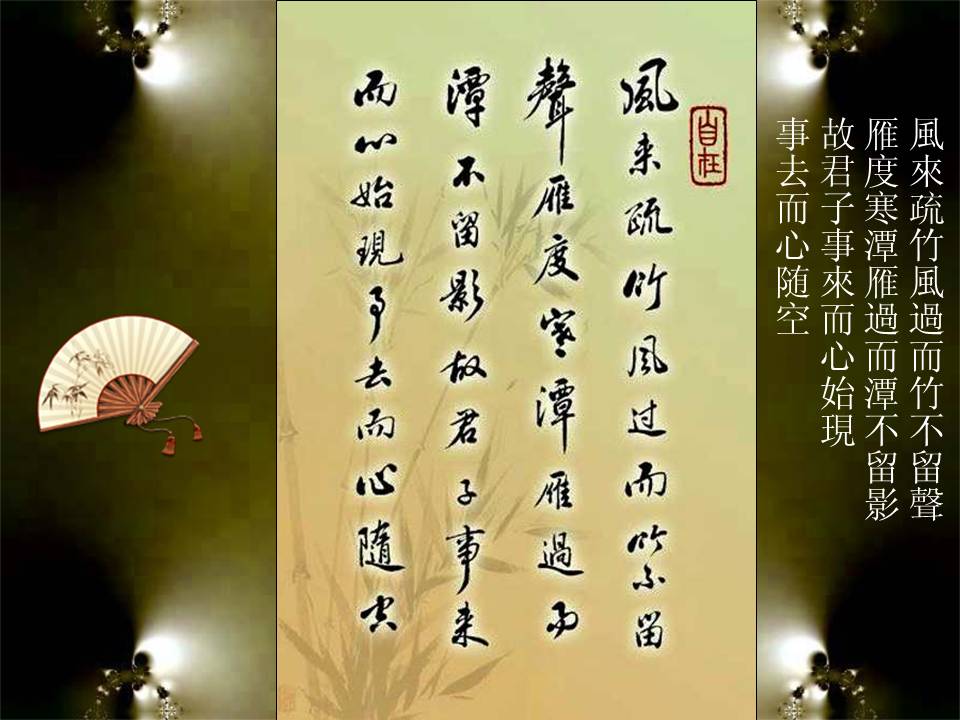 風來疏竹風過而竹不留聲
雁度寒潭雁過而潭不留影
故君子事來而心始現
事去而心随空
自在
風来疏竹風过而竹不留
聲雁度寒潭雁過而
潭不留影故君子事来
而心始現事去而心隨空